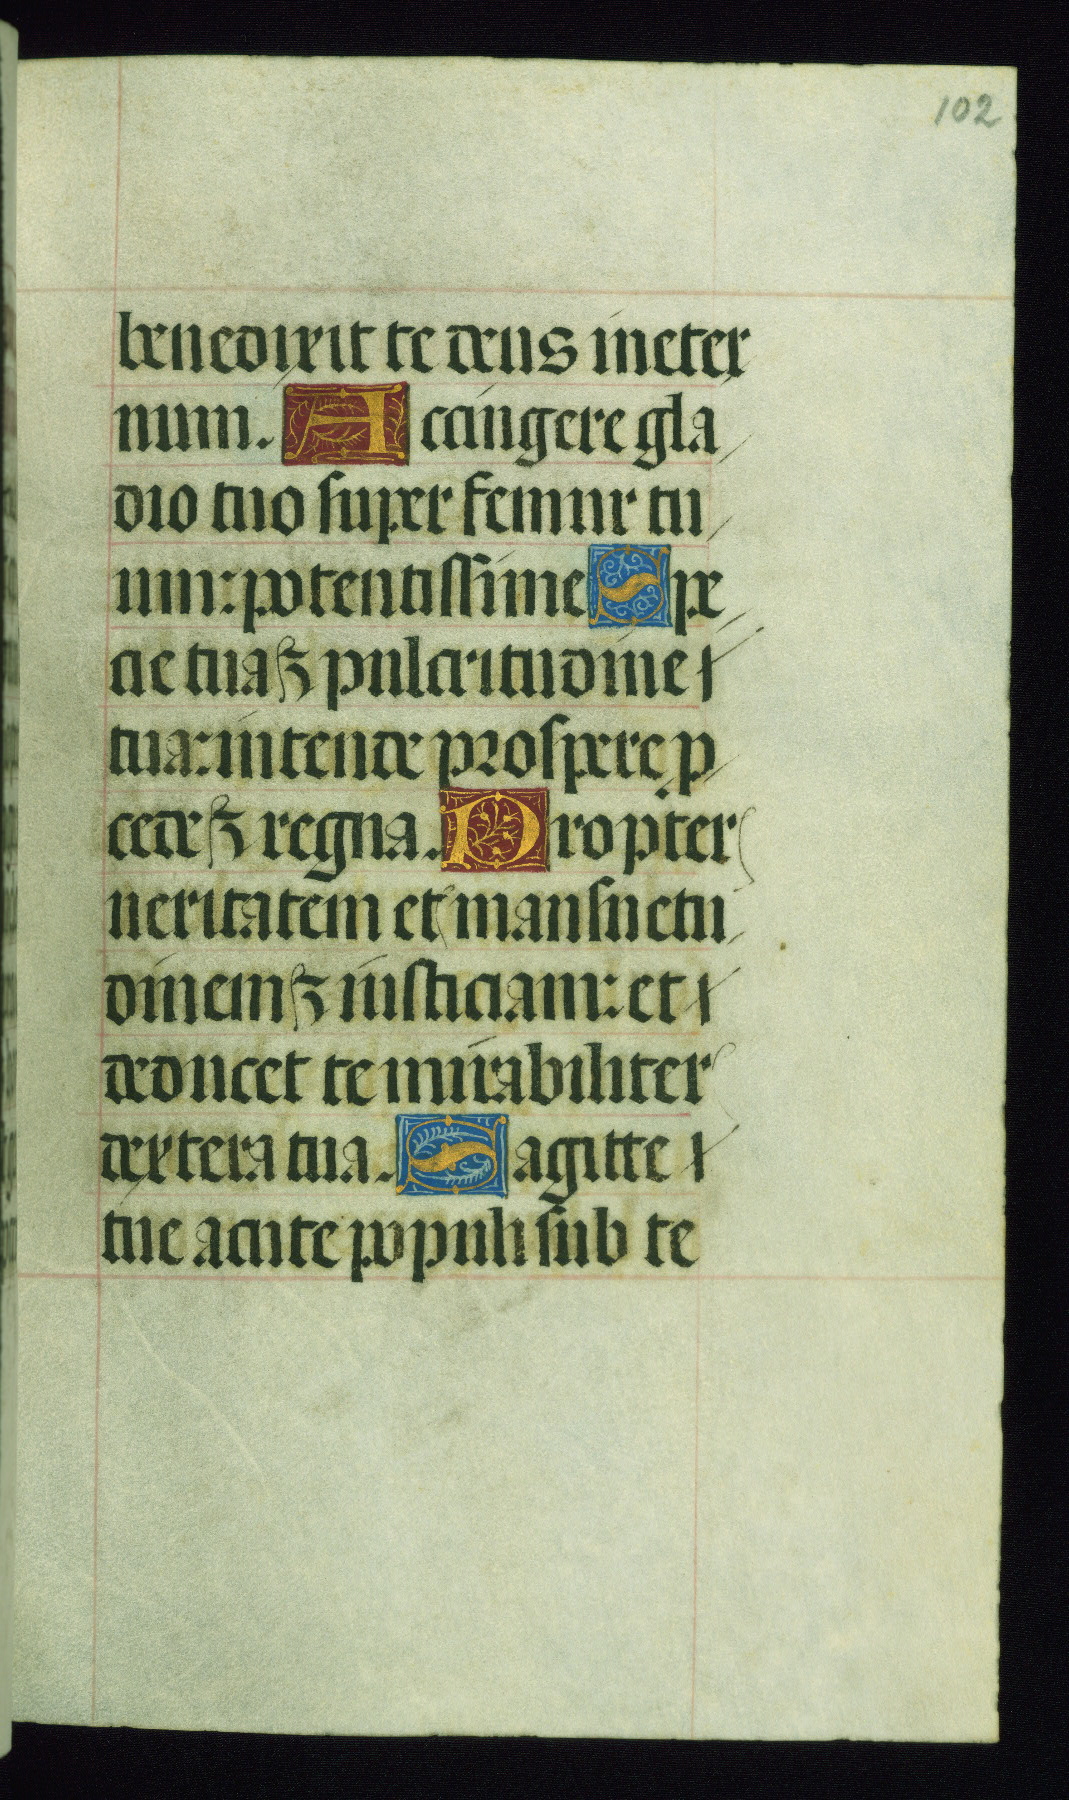 102
benedixit te deus in eter
num. Accingere gla
dio tuo super femur tu
um: potentissime Spe
cie tuaꝫ pulcritudine
tua: intende prospere p
cedeꝫ regna. Propter
ueritatem et mansuetu
dinemꝫ iusticiam: et
deducet te mirabiliter
dextera tua. Sagitte
tue acute populi sub te